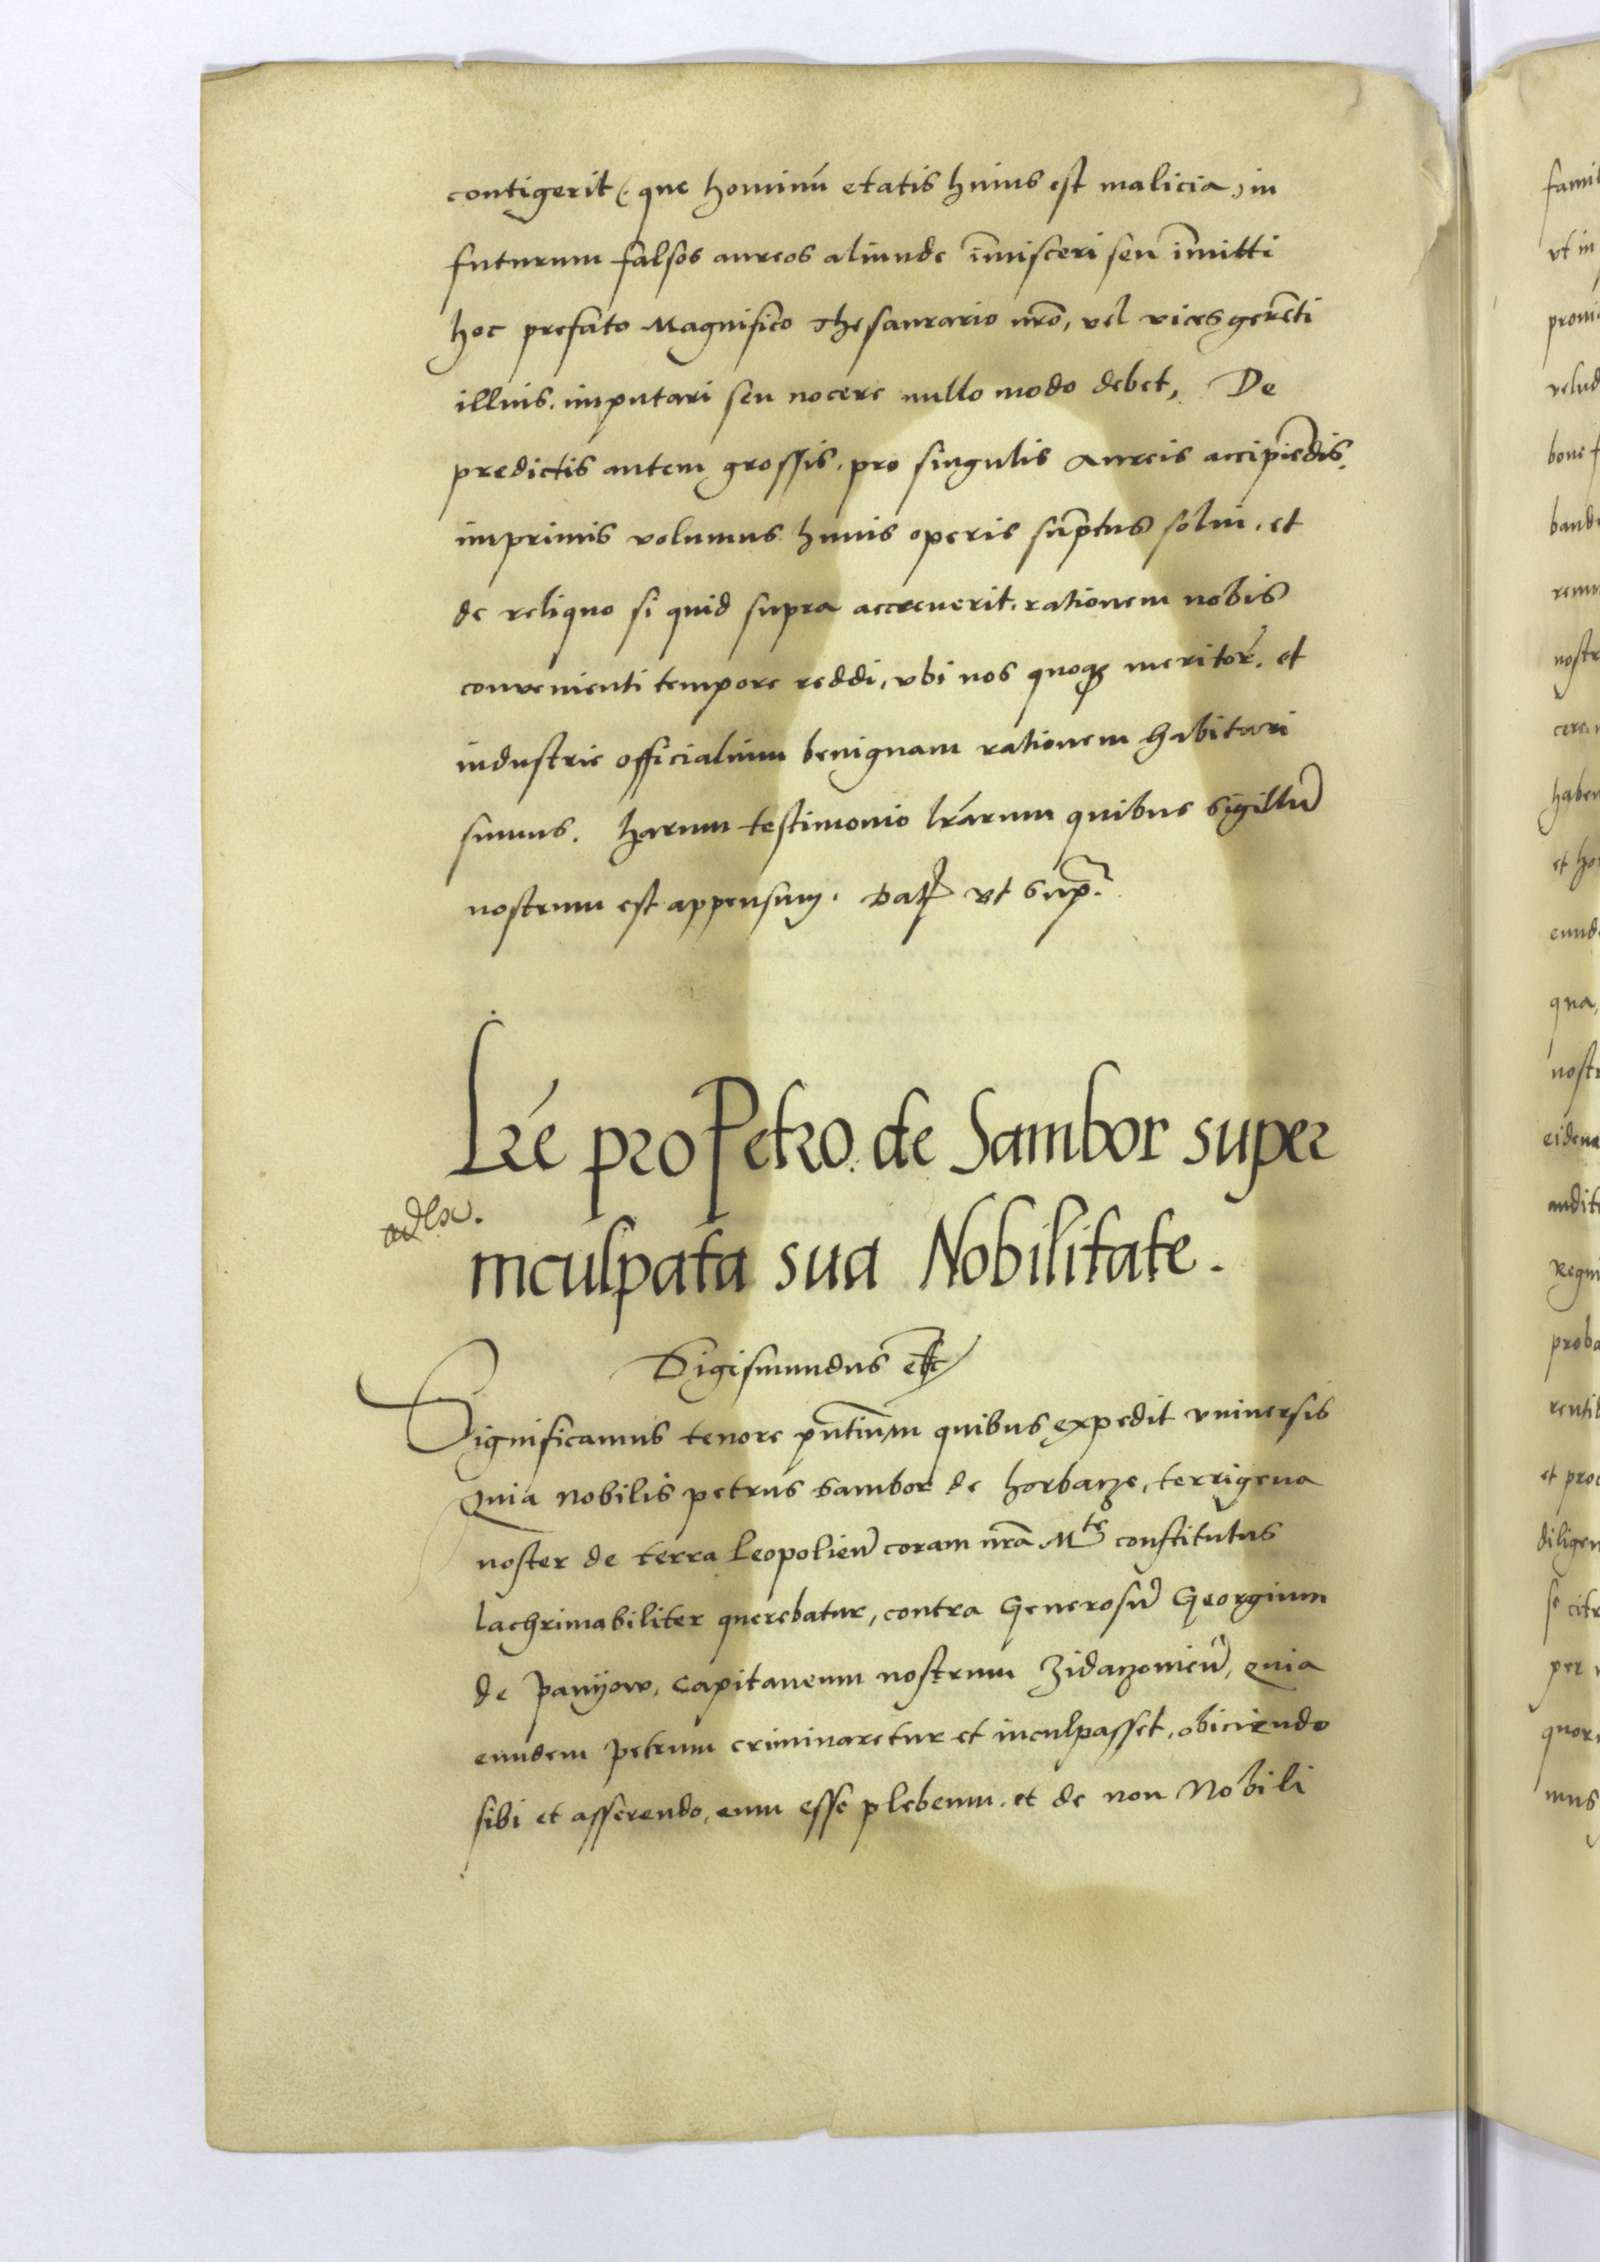 contigerit (. que hominū etatis huius est malicia,) in
futurum falsos aureos aliunde īmisceri seu īmitti
hoc prefato Magnifico Thesaurario nr̄o, vel vices gerēti
illius. imputari seu nocere nullo modo debet, De
predictis autem grossis, pro singulis Aureis accipiēdis.
imprimis volumus huius operis sūptus solui, et
de reliquo si quid supra accreuerit, rationem nobis
convenienti tempore reddi, vbi nos quoqꝫ meritor̄. et
industrie officialium benignam rationem habituri
sumus. harum testimonio lr̄arum quibus Sigillū
nostrum est appensum. Datꝭ vt Sup̄.
Lr̄e pro Petro de Sambor super
inculpata sua Nobilitate.
Sigismundus etc
Significamus tenore pn̄tium quibus expedit vniuersis
Quia Nobilis petrus Sambor de horbacze, terrigena
noster de terra Leopolien̄ coram nr̄a Mte constitutus
lachrimabiliter querebatur, contra Generosū Georgium
de Panyow, Capitaneum nostrum Zidaczouien̄, Quia
eundem Petrum criminaretur et inculpasset, obiciendo
sibi et asserendo, eum esse plebeum, et de non Nobili